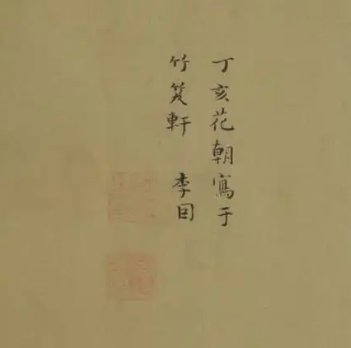 丁亥花朝寫于
竹笑軒 李因